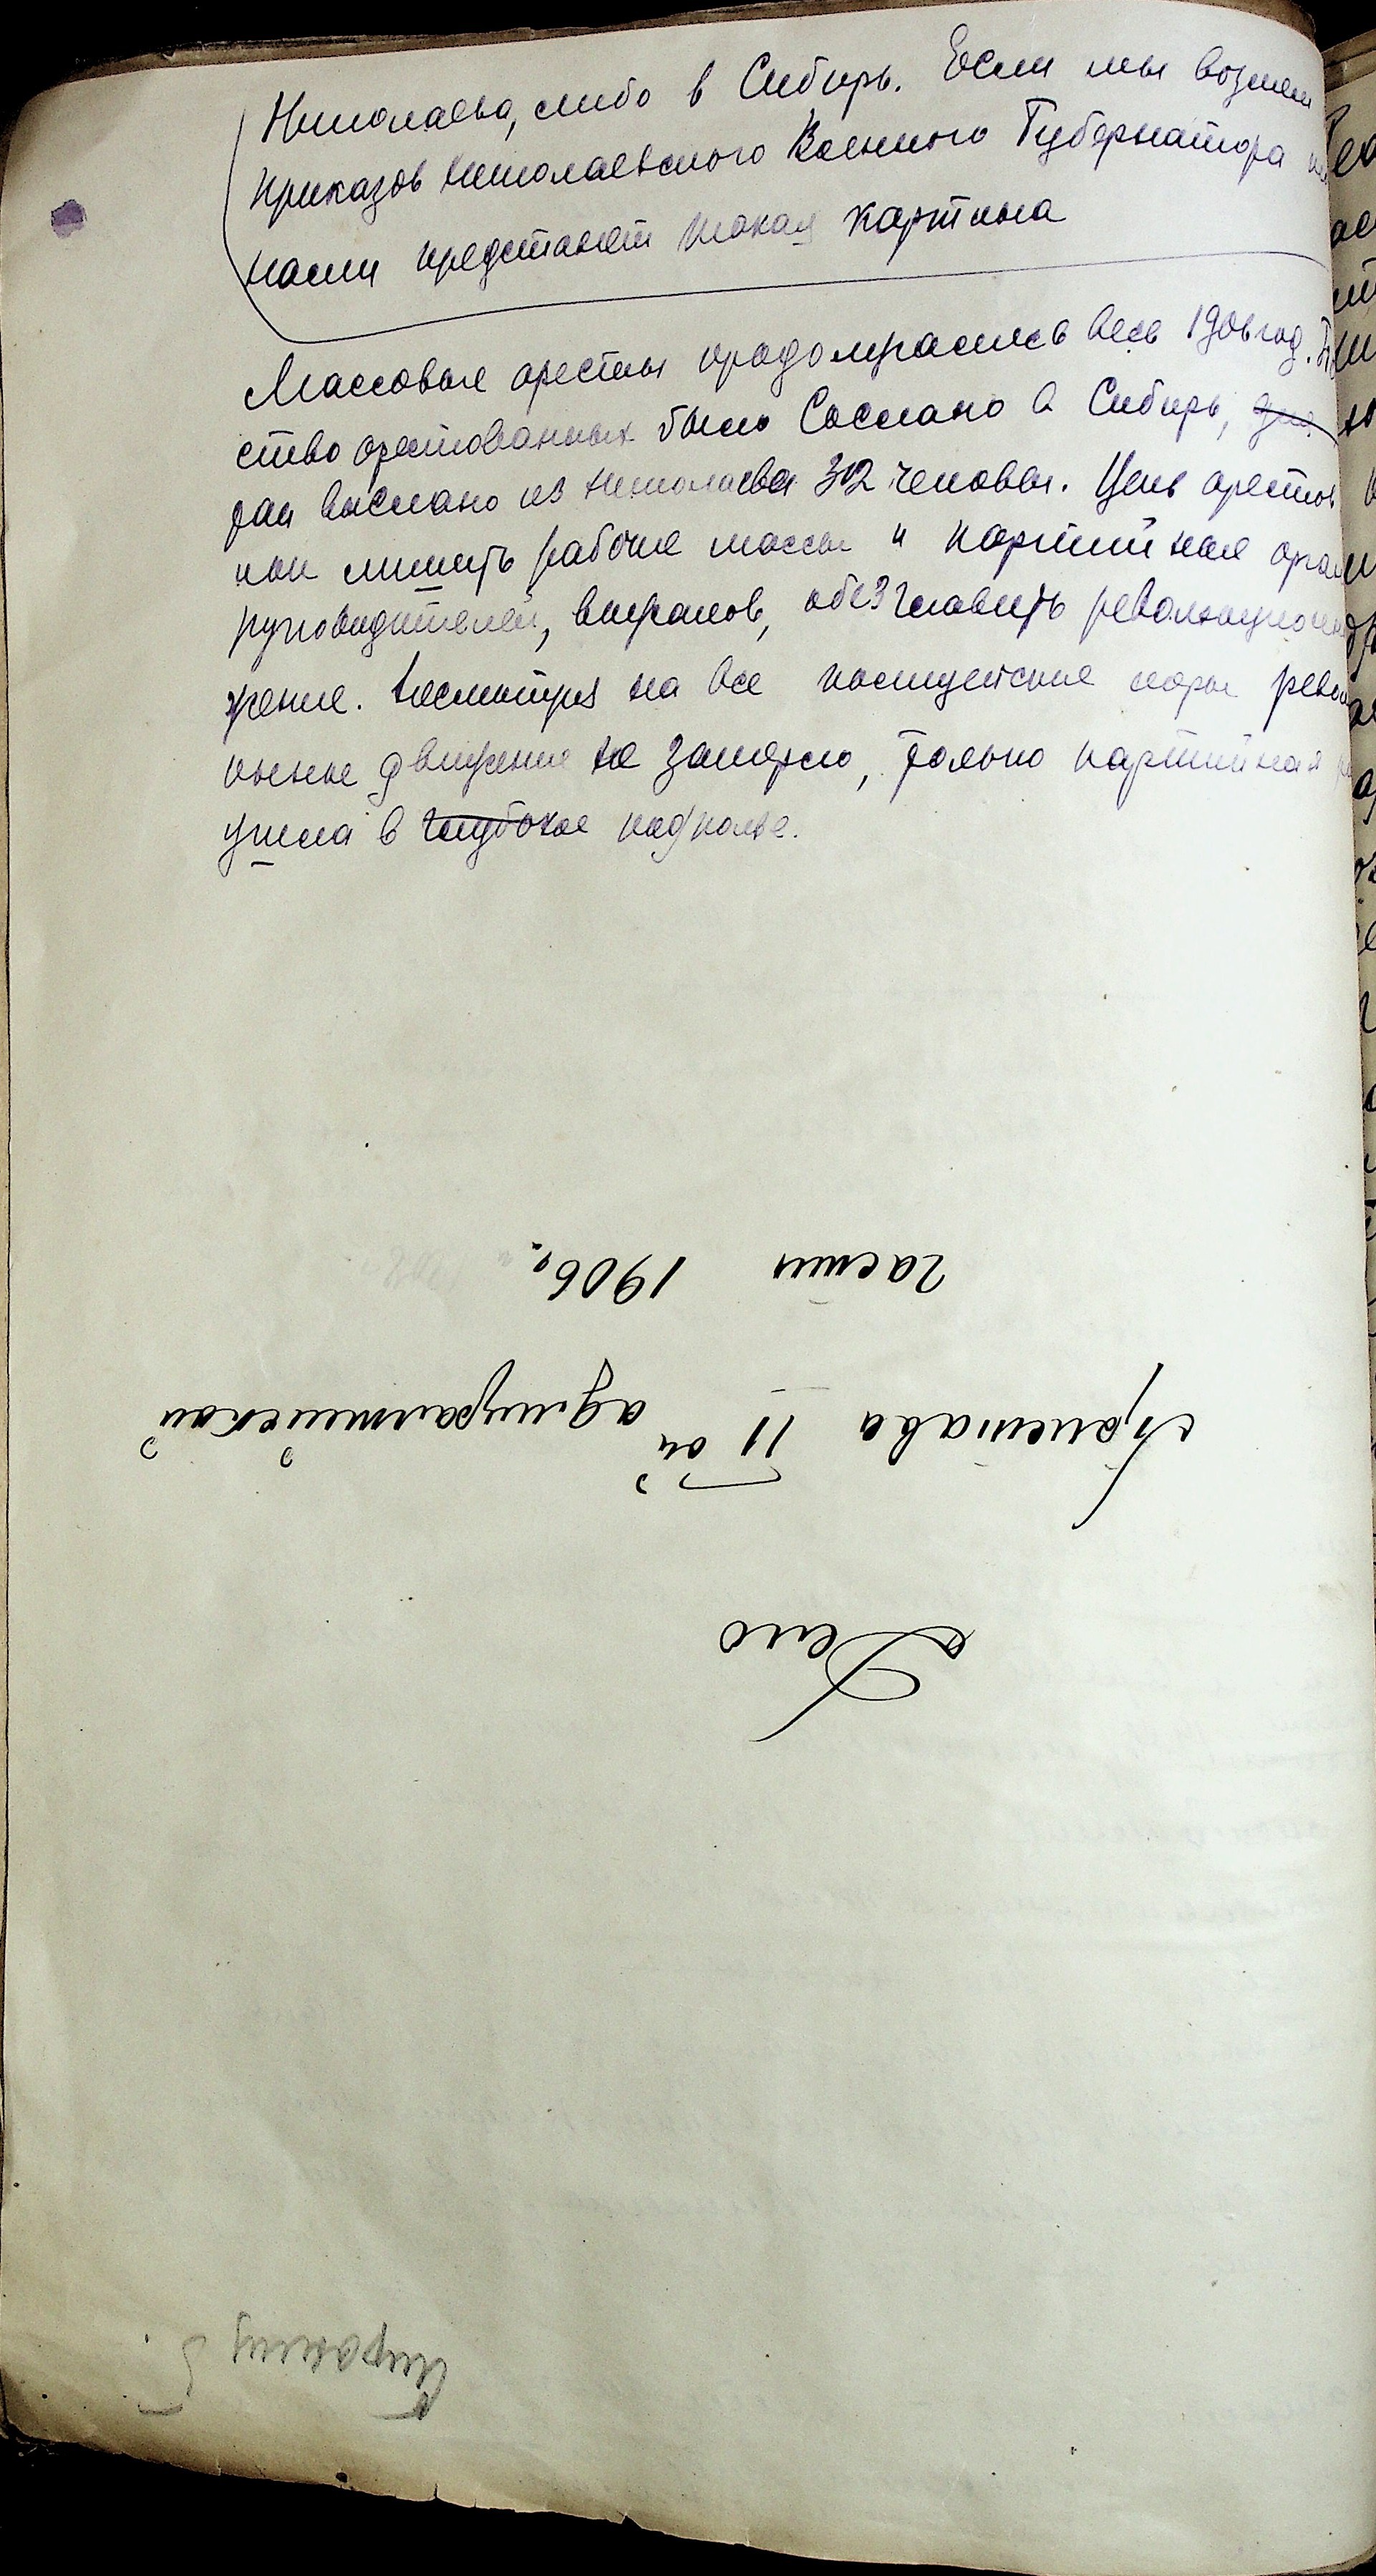 Николаева, либо в Сибирь. Если мы возмем
приказов Николаевского Военного Губернатора
нами предстанет такая картина
Массовые аресты продолжались весь 1906 год.
ство арестованных было Сослано в Сибирь,
выслано из Николаева 302 человек. Цель арестов
лишить рабочие массы и партийные
руководителей, вожаков, обезглавить
жение. Несмотря на все полицейские меры
движение не замерло, только партийная
ушла в глубокое подполье.
Дело
Пристава II ой адмиралтейской
части 1906 г.